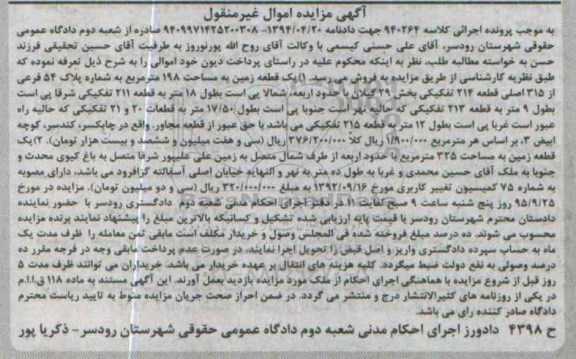 آگهی مزایده اموال غیرمنقول
به موجب پرونده اجرائی کلاسه ۹۴۰۲۶۴ جهت دادنامه ۱۳۹۴/۰۴/۲۰- ۹۴۰۹۹۷۱۴۲۵۲۰۰۳۰۸ صادره از شعبه دوم دادگاه عمومی
حقوقی شهرستان رودسر، آقای علی حسنی کیسمی با وکالت آقای روح الله پورنوروز به طرفیت آقای حسین تحقیقی فرزند
حسن به خواسته مطالبه طلب، نظر به اینکه محکوم علیه در راستای پرداخت دیون خود اموالی را به شرح ذیل تعرفه نموده که
طبق نظریه کارشناسی از طریق مزایده به فروش می رسد. ۱)یک قطعه زمین به مساحت ۱۹۸ مترمربع به شماره پلاک ۵۴ فرعی
از ۳۱۵ اصلی قطعه ۲۱۴ تفکیکی بخش ۲۹ گیلان با حدود اربعه، شمالا پی است بطول ۱۸ متر به قطعه ۲۱۱ تفکیکی شرقا پی است
بطول ۹ متر به قطعه ۲۱۳ تفکیکی که حالیه نهر است جنوبا پی است بطول ۱۷/۵۰ متر به قطعات ۲۰ و ۲۱ تفکیکی که حالیه راه
عبور است غربا پی است بطول ۱۳ متر به قطعه ۲۱۵ تفکیکی می باشد با حق عبور از قطعه مجاور. واقع در چابکسر، کندسر، کوچه
ابیض ۳، بر اساس هر مترمربع ۱/۹۰۰/۰۰۰ ریال کلا ۳۷۶/۲۰۰/۰۰۰ ریال (سی و هفت میلیون و ششصد و بیست هزار تومان). ۲)یک
قطعه زمین به مساحت ۳۲۵ مترمربع با حدود اربعه از طرف شمال متصل به زمین علی علیپور شرقا متصل به باغ کیوی محدث و
جنوبا به ملک آقای حسین محمدی و غربا به طول ده متر به نهر و النهایه خیابان اصلی آسفالته گزافرود می باشد، دارای مصوبه
به شماره ۷۵ کمیسیون تغییر کاربری مورخ ۱۳۹۲/۰۹/۱۶ به مبلغ ۳۲۰/۰۰۰/۰۰۰ ریال (سی و دو میلیون تومان). مزایده در مورخ
۹۵/۹/۲۵ روز پنج شنبه ساعت ۹ صبح لغایت ۱۱ در دفتر اجرای احکام مدنی شعبه دوم دادگستری رودسر با حضور نماینده
دادستان محترم شهرستان رودسر با قیمت پایه ارزیابی شده تشکیل و کسانیکه بالاترین مبلغ را پیشنهاد نمایند برنده مزایده
محسوب می شوند. ده درصد مبلغ فروخته شده فی المجلس وصول و خریدار مکلف است مابقی ثمن معامله را ظرف مدت یک
ماه به حساب سپرده دادگستری واریز و اصل فیش را تحویل اجرا نمایند. در صورت عدم پرداخت مابقی وجه در فرجه مقرر ده
درصد وصولی به نفع دولت ضبط میگردد. کلیه هزینه های انتقال بر عهده خریدار می باشد. خریداران می توانند ظرف مدت ۵
روز قبل از شروع مزایده با هماهنگی اجرای احکام از ملک مورد مزایده بازدید بعمل آورند. این آگهی مستند به ماده ۱۱۸ ق.ا.ا.م
در یکی از روزنامه های کثیرالانتشار درج و منتشر می گردد. در ضمن احراز صحت جریان مزایده منوط به تایید ریاست محترم
دادگاه صادر کننده رای می باشد.
ح ۴۳۹۸ دادورز اجرای احکام مدنی شعبه دوم دادگاه عمومی حقوقی شهرستان رودسر- ذکریا پور